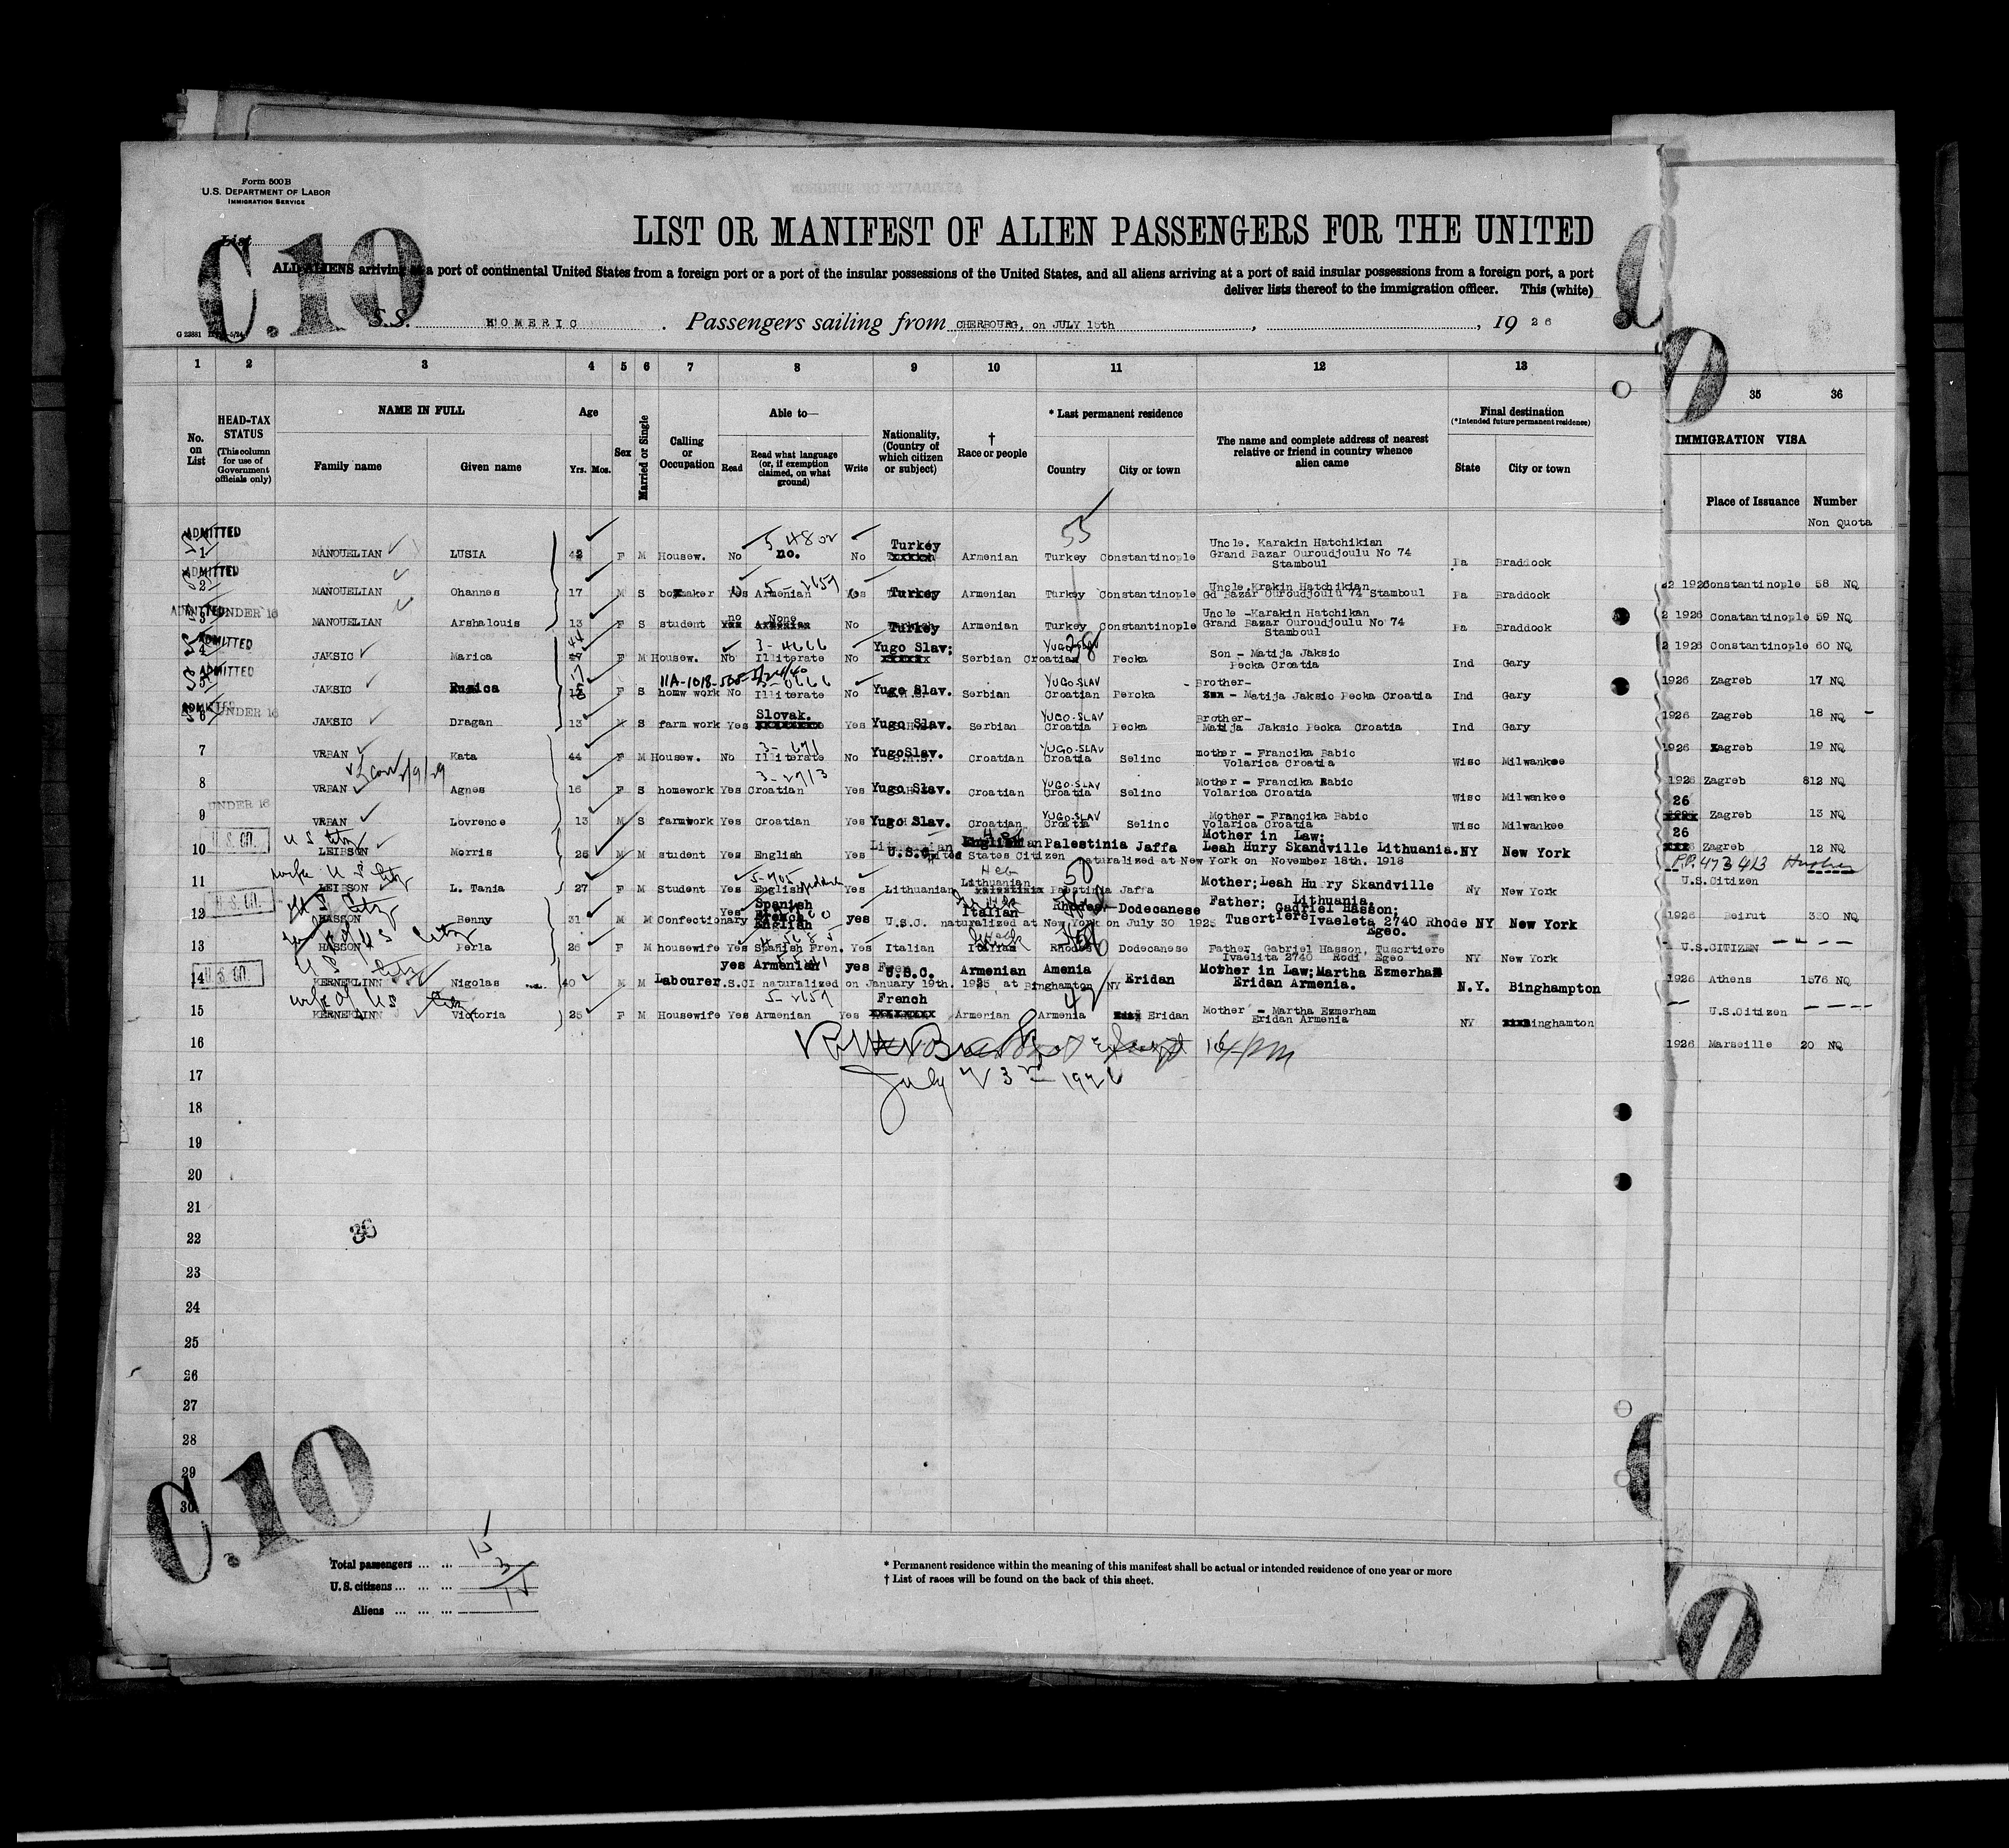 Form 500B
U.S. DEPARTMENT OF LABOR
IMMIGRATION SERVICE
List
C.10
LIST OR MANIFEST OF ALIEN PASSENGERS FOR THE UNITED
ALL ALIENS arriving at a port of continental United States from a foreign port or a port of the insular possessions of the United States, and all aliens arriving at a port of said insular possessions from a foreign port, a port
deliver lists thereof to the immigration officer. This (white)
S.S. HOMERIC . Passengers sailing from CHERBOURG, on JULY 15th , , 19 26
1 2 3 4 5 6 7 8 9 10 11 12 13 35 36
No. on List
HEAD-TAX STATUS (This column for use of Government officials only)
NAME IN FULL
Family name Given name
Age Yrs. Mos.
Sex
Married or Single
Calling or Occupation
Able to—
Read Read what language (or, if exemption claimed, on what ground) Write
Nationality, (Country of which citizen or subject)
† Race or people
* Last permanent residence
Country City or town
The name and complete address of nearest relative or friend in country whence alien came
Final destination
(*Intended future permanent residence)
State City or town
IMMIGRATION VISA
Place of Issuance Number
Non Quota
ADMITTED 1 MANOUELIAN LUSIA 42 F M Housew. No no. No Turkey Armenian Turkey Constantinople Uncle. Karakin Hatchikian Grand Bazar Ouroudjoulu No 74 Stamboul Pa Braddock
ADMITTED 2 MANOUELIAN Ohannes 17 M S boxmaker Yes Armenian Yes Turkey Armenian Turkey Constantinople Uncle Krakin Hatchikian Gd Bazar Ouroudjoulu 74 Stamboul Pa Braddock
2 1926 Constantinople 58 NQ
ADMITTED 3 UNDER 16 MANOUELIAN Arshalouis 13 F S student no None No Turkey Armenian Turkey Constantinople Uncle -Karakin Hatchikan Grand Bazar Ouroudjoulu No 74 Stamboul Pa Braddock
2 1926 Conatantinople 59 NQ
ADMITTED 4 JAKSIC Marica 44 F M Housew. No Illiterate No Yugo Slav; Serbian Croatian Pecka Son - Matija Jaksic Pecka Croatia Ind Gary
2 1926 Constantinople 60 NQ
ADMITTED 5 JAKSIC Rumica 17 F S homw work No Illiterate No Yugo Slav. Serbian YUGO-SLAV Croatian Percka Brother- - Matija Jaksic Pecka Croatia Ind Gary
1926 Zagreb 17 NQ
ADMITTED 6 UNDER 16 JAKSIC Dragan 13 S farm work Yes Slovak. Yes Yugo Slav. Serbian YUGO-SLAV Croatia Pecka Brother- Matija Jaksic Pecka Croatia Ind Gary
1926 Zagreb 18 NQ
7 VRBAN Kata 44 F M Housew. No Illiterate No YugoSlav. Croatian YUGO-SLAV Croatia Selinc mother - Francika Babic Volarica Croatia Wisc Milwankee
1926 Zagreb 19 NQ
8 VRBAN Agnes 16 F S homework Yes Croatian Yes Yugo Slav. Croatian YUGO-SLAV Croatia Selinc Mother - Francika Babic Volarica Croatia Wisc Milwankee
1926 Zagreb 812 NQ
UNDER 16
9 VRBAN Lovrence 13 M S farmwork Yes Croatian Yes Yugo Slav. Croatian YUGO-SLAV Croatia Selinc Mother - Francika Babic Volarica Croatia Wisc Milwankee
26 Zagreb 13 NQ
10 U.S. CO. LEIBSON Morris 26 M M student Yes English Yes U.S.C. Palestinia Jaffa Mother in Law; Leah Hury Skandville Lithuania. NY New York
United States Citizen naturalized at New York on November 18th. 1918
26 Zagreb 12 NQ
P.P. 473413
11 wife U S LEIBSON L. Tania 27 F M Student Yes English Yes Lithuanian Lithuanian Palestinia Jaffa Mother; Leah Hurry Skandville Lithuania. NY New York
U.S.Citizen
12 U.S. CO. HASSON Benny 31 M M Confectionary Yes Spanish French English yes Italian Rhodes Dodecanese Father; Gadriel Hasson; Tusortiere Ivaeleta 2740 Rhode Egeo. NY New York
U.S.C. naturalized at New York on July 30 1925
1926 Beirut 330 NQ
13 HASSON Perla 26 F M housewife Yes Spanish Fren. Yes Italian Italian Rhodes Dodecanese Father Gabriel Hasson, Tusortiere Ivaelita 2740 Rodi Egeo NY New York
U.S.CITIZEN
14 U.S. CO. KERNEKLINN Nigolas 40 M M Labourer yes Armenian yes U.S.C. Armenian Amenia Eridan Mother in Law; Martha Ezmerham Eridan Armenia. N.Y. Binghampton
.S.CI naturalized on January 19th. 1925 at Binghamton NY
1926 Athens 1576 NQ
wife of US
15 KERNEKLINN Victoria 25 F M Housewife Yes Armenian Yes French Armenian Armenia Eridan Mother - Martha Ezmerham Eridan Armenia NY Binghamton
U.S.Citizen
16
1926 Marseille 20 NQ
July 23rd 1926
17
18
19
20
21
22
23
24
25
26
27
28
29
30
C.10
Total passengers ... ... 15
U.S. citizens ... ... ... 3
Aliens ... ... ... 12
* Permanent residence within the meaning of this manifest shall be actual or intended residence of one year or more
† List of races will be found on the back of this sheet.